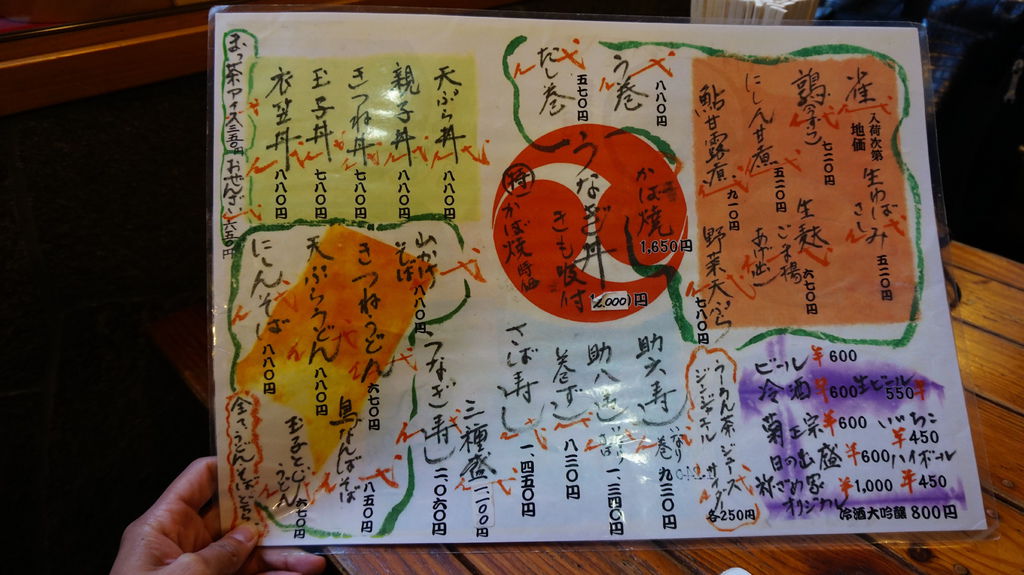 雀 入荷次第 地価
生ゆばさしみ 五二〇円
鶉
七二〇円
生麩 ごま揚 あげ出し 六七〇円
にしん甘煮 五二〇円
鮎甘露煮 九一〇円
野菜天ぷら 七八〇円
う巻 八八〇円
だし巻 五七〇円
かば焼 1,650円
うなぎ丼 きも吸付 2,000円
特 かば焼 時価
天ぷら丼 八八〇円
親子丼 八八〇円
きつね丼 八八〇円
玉子丼 七八〇円
衣笠丼 八八〇円
まっ茶アイス 三五〇円
おぜんざい 六五〇円
山かけそば 八八〇円
きつねうどん 六七〇円
鳥なんばそば 八五〇円
天ぷらうどん 八八〇円
玉子とじうどん 六七〇円
にしんそば 八八〇円
助六寿し 九二〇円
助八寿し 一、三四〇円
巻ずし 八三〇円
さば寿し 一、四五〇円
三種盛 二一〇〇円
うなぎ寿し 二、〇六〇円
ウーロン茶 ジュース
ジンジャエール サイダー
各250円
ビール ¥600
冷酒 ¥600 生ビール 550¥
菊正宗 ¥600 いいちこ ¥450
日の出盛 ¥600 ハイボール ¥450
オリジナル ¥1,000
冷酒大吟醸 800円